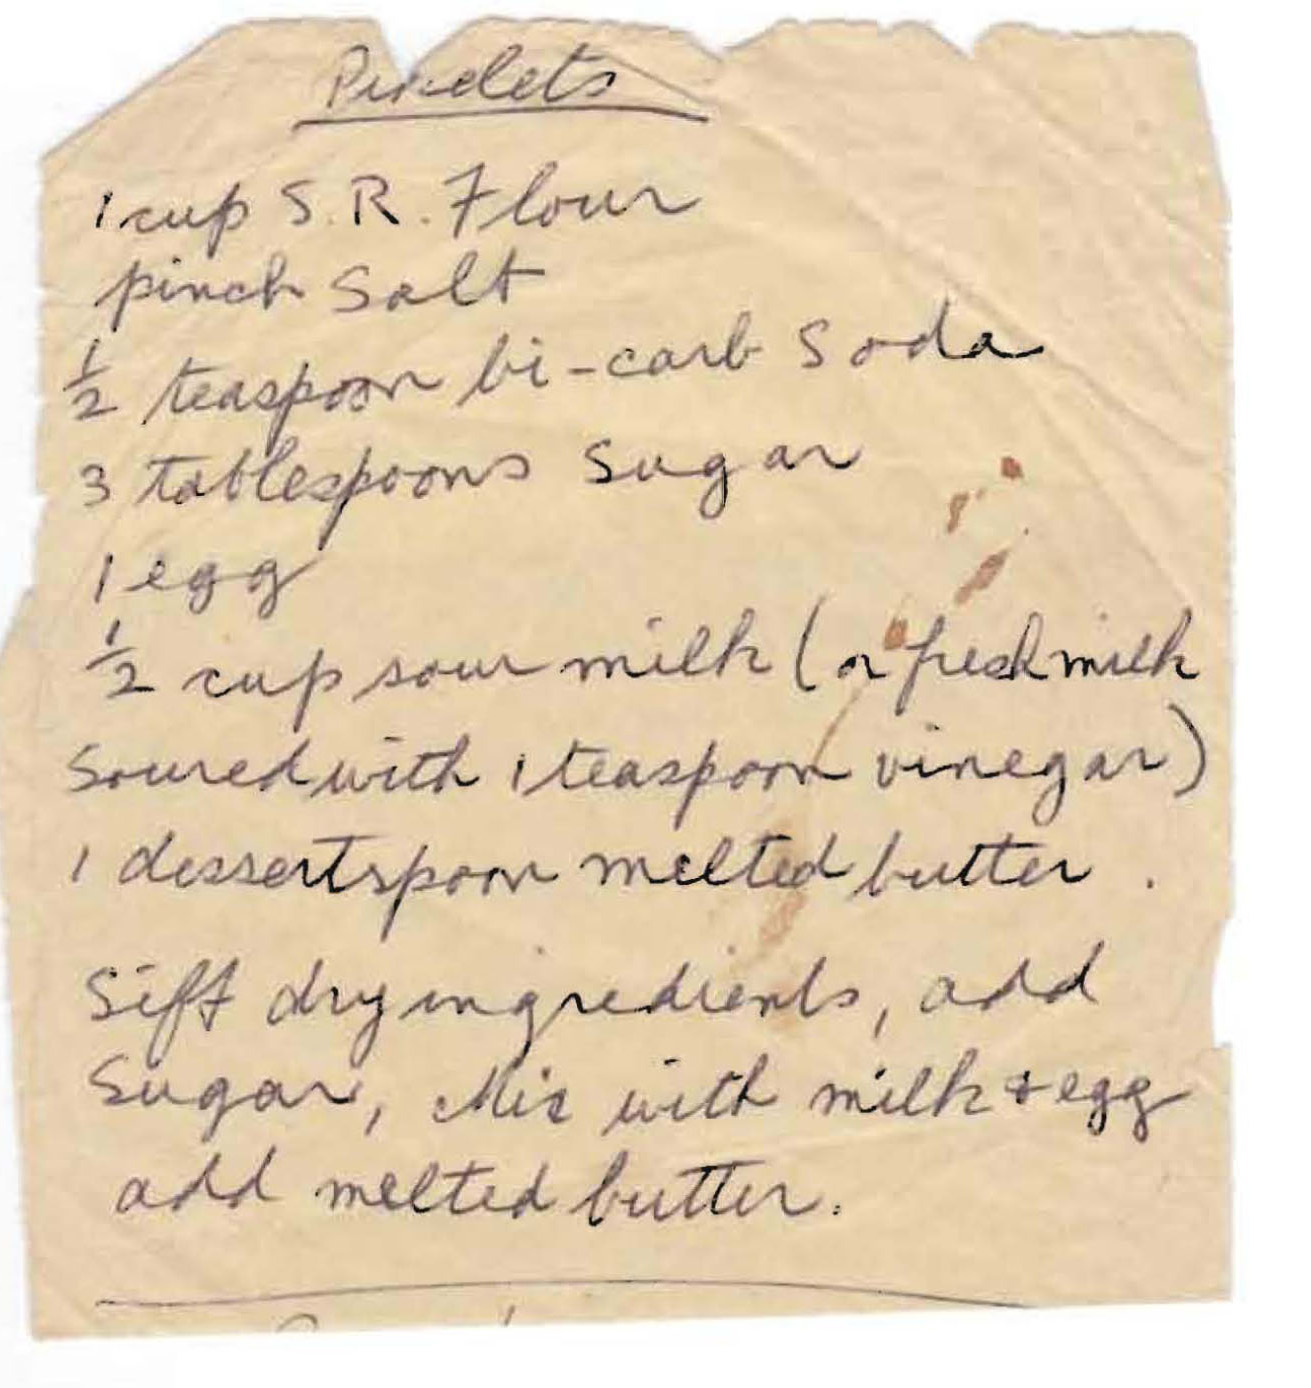 Pikelets
1 cup S.R. Flour
pinch Salt
1/2 teaspoon bi-carb Soda
3 tablespoons Sugar
1 egg
1/2 cup sour milk (or fresh milk
Soured with 1 teaspoon vinegar)
1 dessertspoon melted butter .
Sift dry ingredients, add
Sugar, Mix with milk + egg
add melted butter.